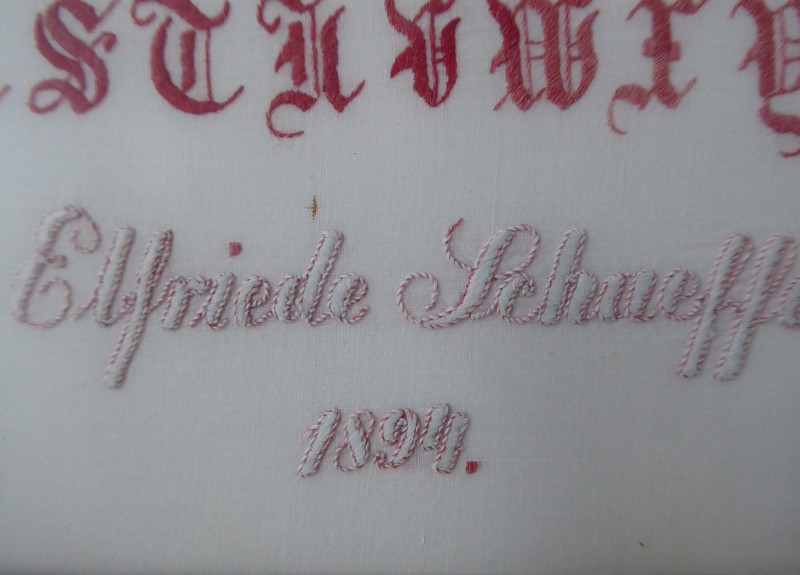 S T U V W X Y
Elfriede Schueffe
1894.